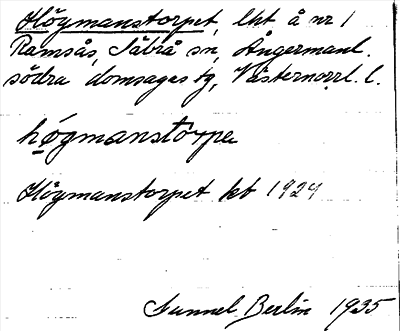 Högmanstorpet, lht å nr 1
Ramsås, Säbrå sn, Ångermanl.
södra domsagas tg, Västernorrl. l.
högmanstorpe
Högmanstorpet kb 1924
Gunnel Berlin 1935